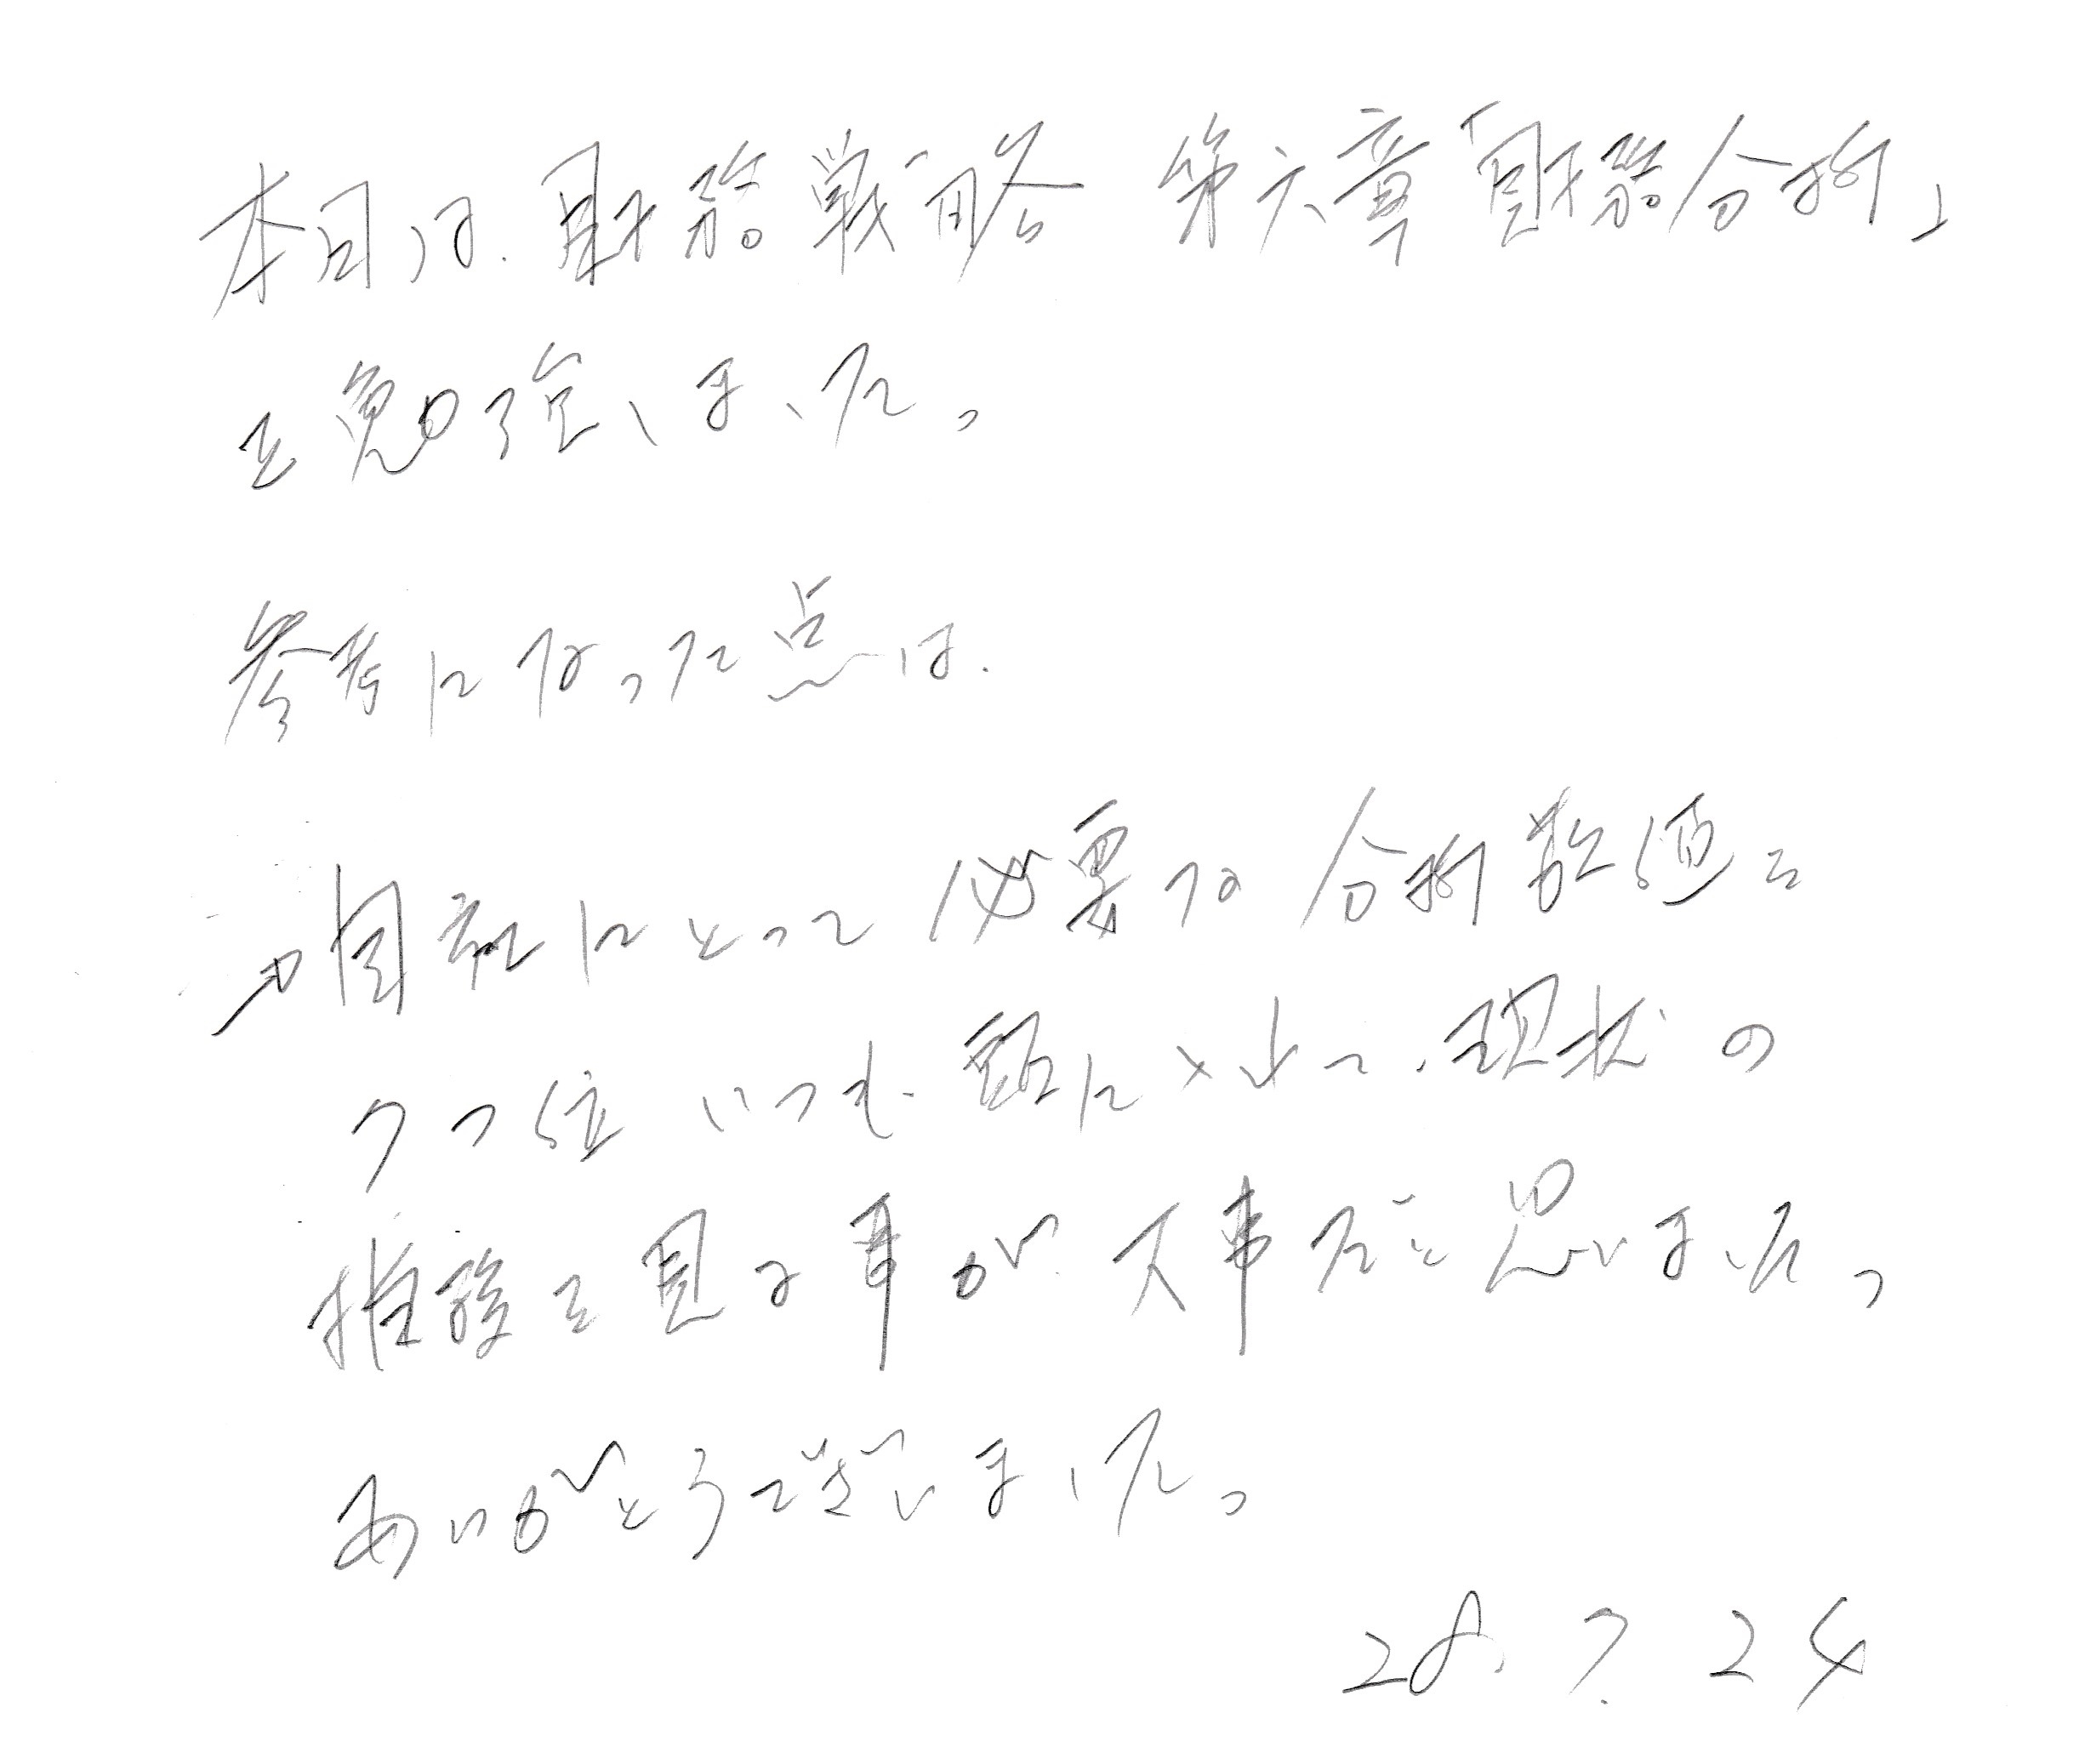 本日は、財務戦略 第六章「財務分析」
を勉強しました。
参考になった点は、
→自社にとって必要な分析数値を
7つ位いつも頭に入れて、現状の
推移を見る事が大事だと思いました。
ありがとうございました。
28.7.24